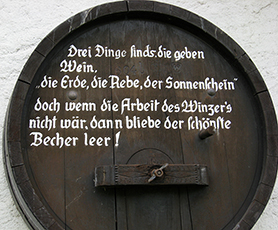 Drei Dinge sinds, die geben
Wein,
„die Erde, die Rebe, der Sonnenschein"
doch wenn die Arbeit des Winzer's
nicht wär, dann bliebe der schönste
Becher leer!